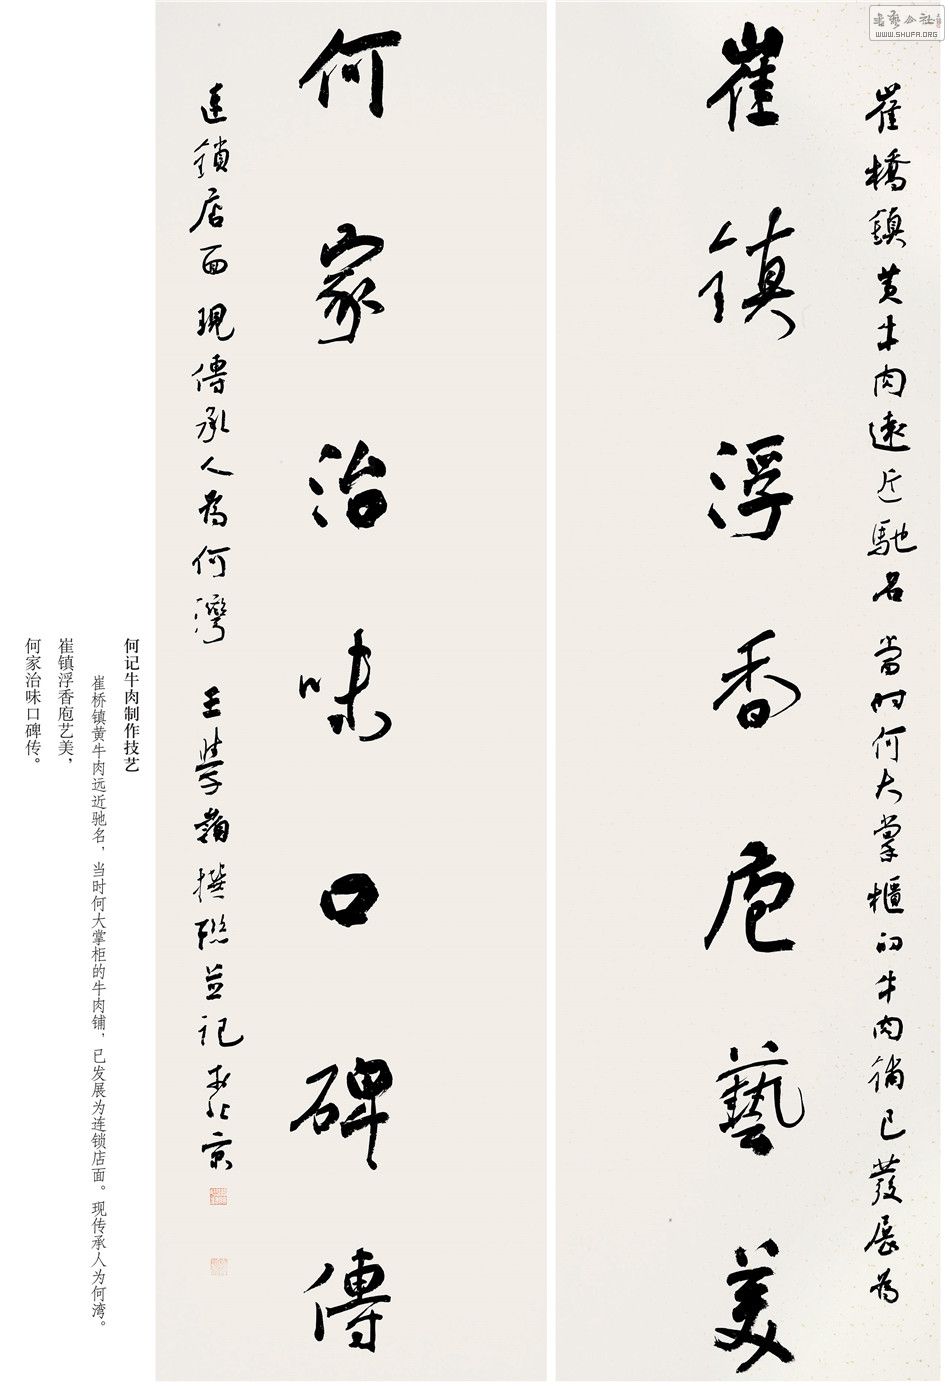 崔橋鎮黄牛肉遠近馳名當时何大掌櫃的牛肉鋪已發展為
崔鎮浮香庖藝美
何家治味口碑傳
連鎖店面現傳承人為何灣 王學嶺撰聯並記於北京
何记牛肉制作技艺
崔桥镇黄牛肉远近驰名，当时何大掌柜的牛肉铺，已发展为连锁店面。现传承人为何湾。
崔镇浮香庖艺美，
何家治味口碑传。
WWW.SHUFA.ORG